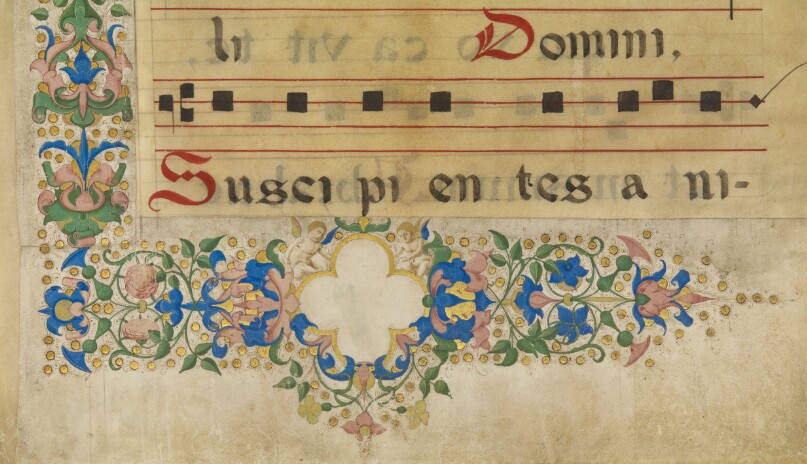 li Domini,
Suscipi en tes a ni-